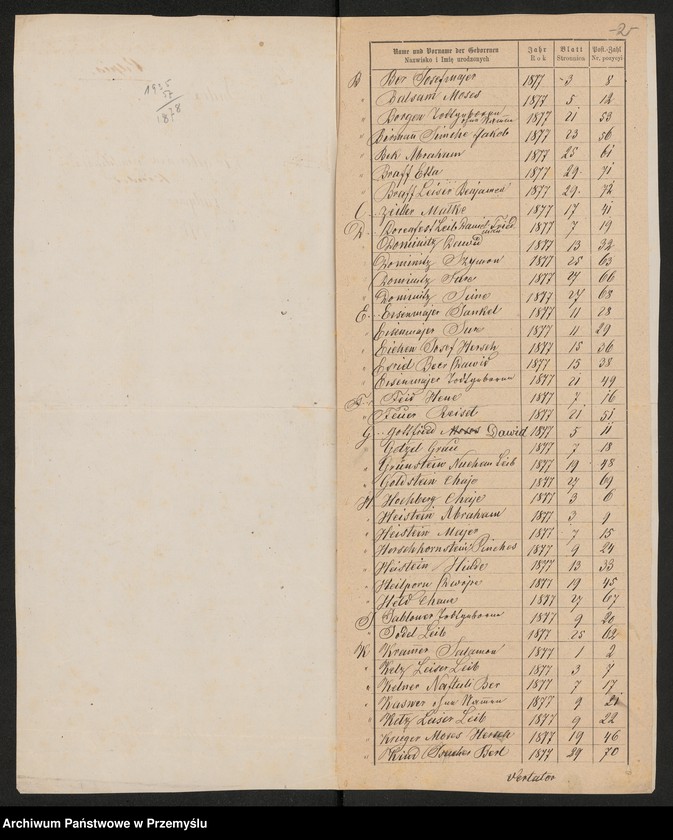 1935
57
1878
-2-
Name und Vorname der Geborenen Jahr Blatt Post.-Zahl
Nazwisko i Imię urodzonych Rok Stronnica Nr. pozycyi
B Ber Josefmajer 1877 3 8
" Balsam Moses 1877 5 12
" Borgen Todtgeboren ohne Namen 1877 21 53
" Berman Simche Jakob 1877 23 56
" Bek Abraham 1877 25 61
" Braff Etta 1877 29 71
" Braff Leiser Benjamin 1877 29 72
C Zieller Malke 1877 17 41
D Dorenfest Leib Dawid 1877 7 19
" Dominitz Dawid 1877 13 32
" Dominitz Szymon 1877 25 63
" Dominitz Sara 1877 27 66
" Dominitz Seine 1877 27 68
E Eisenmajer Jankel 1877 11 28
" Eisenmajer Sur 1877 11 29
" Eichen Josef Hersch 1877 15 36
" Beer Dawid 1877 15 38
" Eisenmajer Todtgeboren 1877 21 49
F Feis Hene 1877 7 16
" Feuer Reisel 1877 21 51
G Gottfried Dawid 1877 5 11
" Getzel Grau 1877 7 18
" Grünstein Nuchem Leib 1877 19 48
" Goldstein Chaje 1877 27 69
H Hochberg Chaje 1877 3 6
" Heistein Abraham 1877 3 9
" Heistein Majer 1877 7 15
" Herschhornstein Pinches 1877 9 24
" Heistein Hinde 1877 13 33
" Heilporn Dwojre 1877 19 45
" Held Chane 1877 27 67
J Jabloner Todtgeboren 1877 9 20
" Jodel Leib 1877 25 62
K Kramer Salamon 1877 1 2
" Ketz Leiser Leib 1877 3 7
" Kelner Naftuli Ber 1877 7 17
" Kaswer ohne Namen 1877 9 21
" Ketz Laiser Leib 1877 9 22
" Krieger Moses Hersch 1877 19 46
" Kind Issacher Berl 1877 29 70
Vertatur
Archiwum Państwowe w Przemyślu